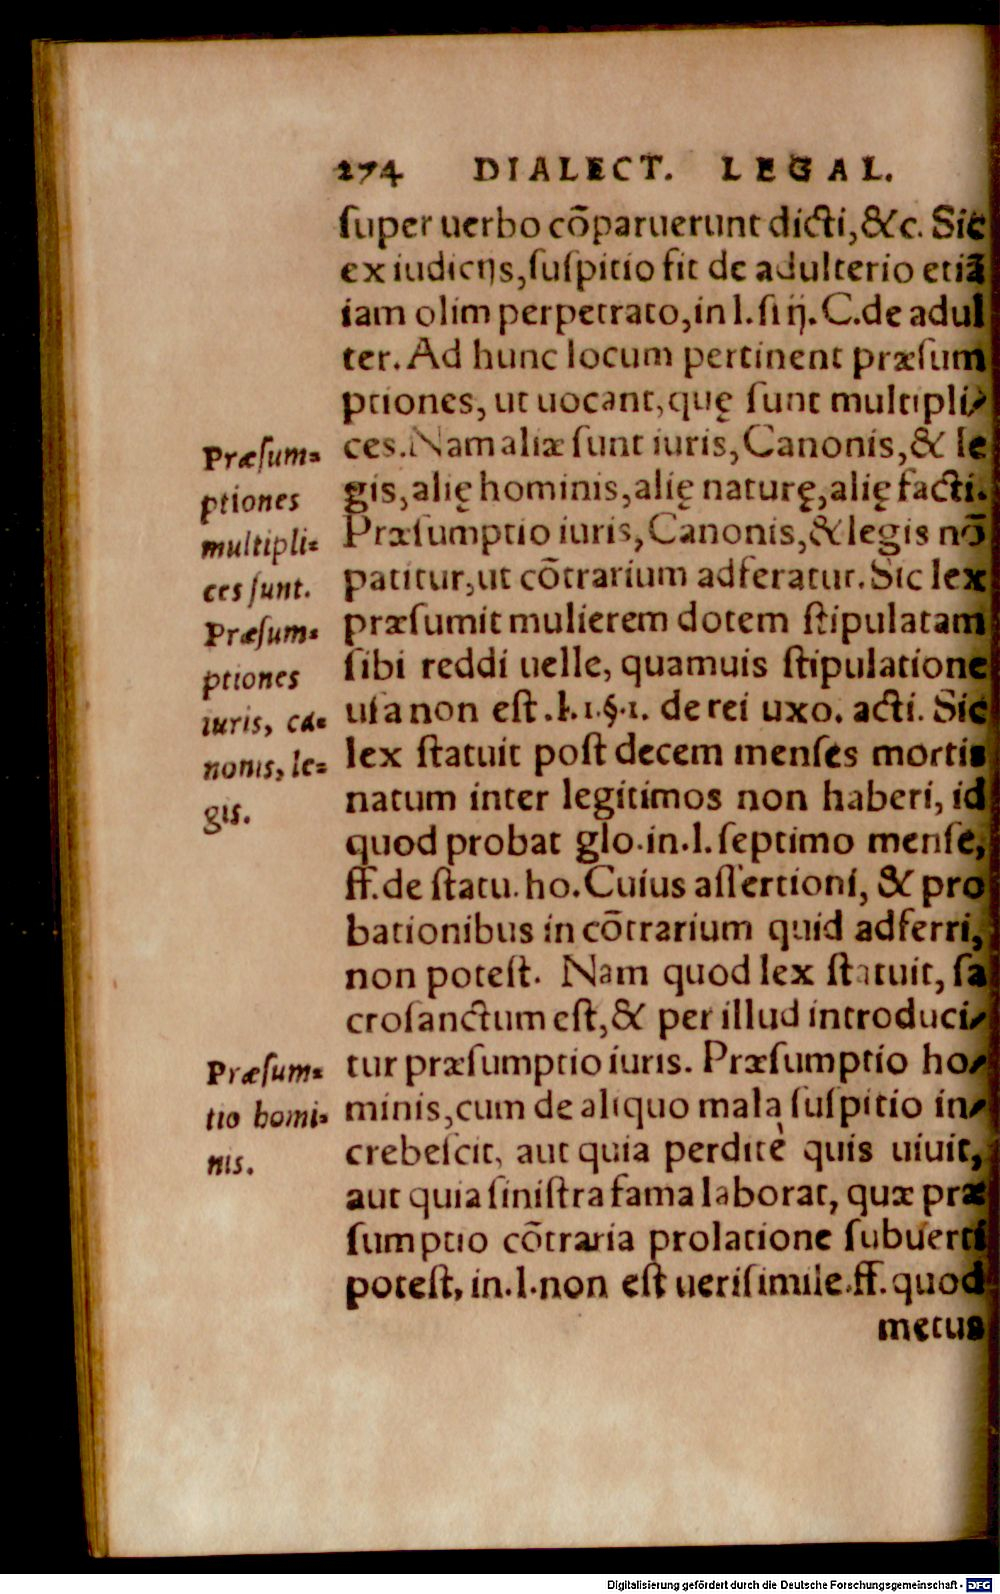 274 DIALECT. LEGAL.
ſuper uerbo cõparuerunt dicti, &c. Sic
ex iudicijs, ſuſpitio fit de adulterio etiã
iam olim perpetrato, in l. ſi ij. C. de adul
ter. Ad hunc locum pertinent præſum
ptiones, ut uocant, quę ſunt multipli-
ces. Nam aliæ ſunt iuris, Canonis, & le
gis, alię hominis, alię naturę, alię facti.
Præſumptio iuris, Canonis, & legis nõ
patitur, ut cõtrarium adferatur. Sic lex
præſumit mulierem dotem ſtipulatam
ſibi reddi uelle, quamuis ſtipulatione
uſa non eſt. l. 1. §. 1. de rei uxo. acti. Sic
lex ſtatuit poſt decem menſes mortis
natum inter legitimos non haberi, id
quod probat glo. in. l. ſeptimo menſe,
ff. de ſtatu. ho. Cuius aſſertioni, & pro
bationibus in cõtrarium quid adferri,
non poteſt. Nam quod lex ſtatuit, ſa
croſanctum eſt, & per illud introduci-
tur præſumptio iuris. Præſumptio ho-
minis, cum de aliquo mala ſuſpitio in-
crebeſcit, aut quia perditè quis uiuit,
aut quia ſiniſtra fama laborat, quæ præ
ſumptio cõtraria prolatione ſubuerti
poteſt, in. l. non eſt ueriſimile. ff. quod
metus
Præſum-
ptiones
multipli-
ces ſunt.
Præſum-
ptiones
iuris, ca-
nonis, le-
gis.
Præſum-
tio homi-
nis.
Digitalisierung gefördert durch die Deutsche Forschungsgemeinschaft - DFG